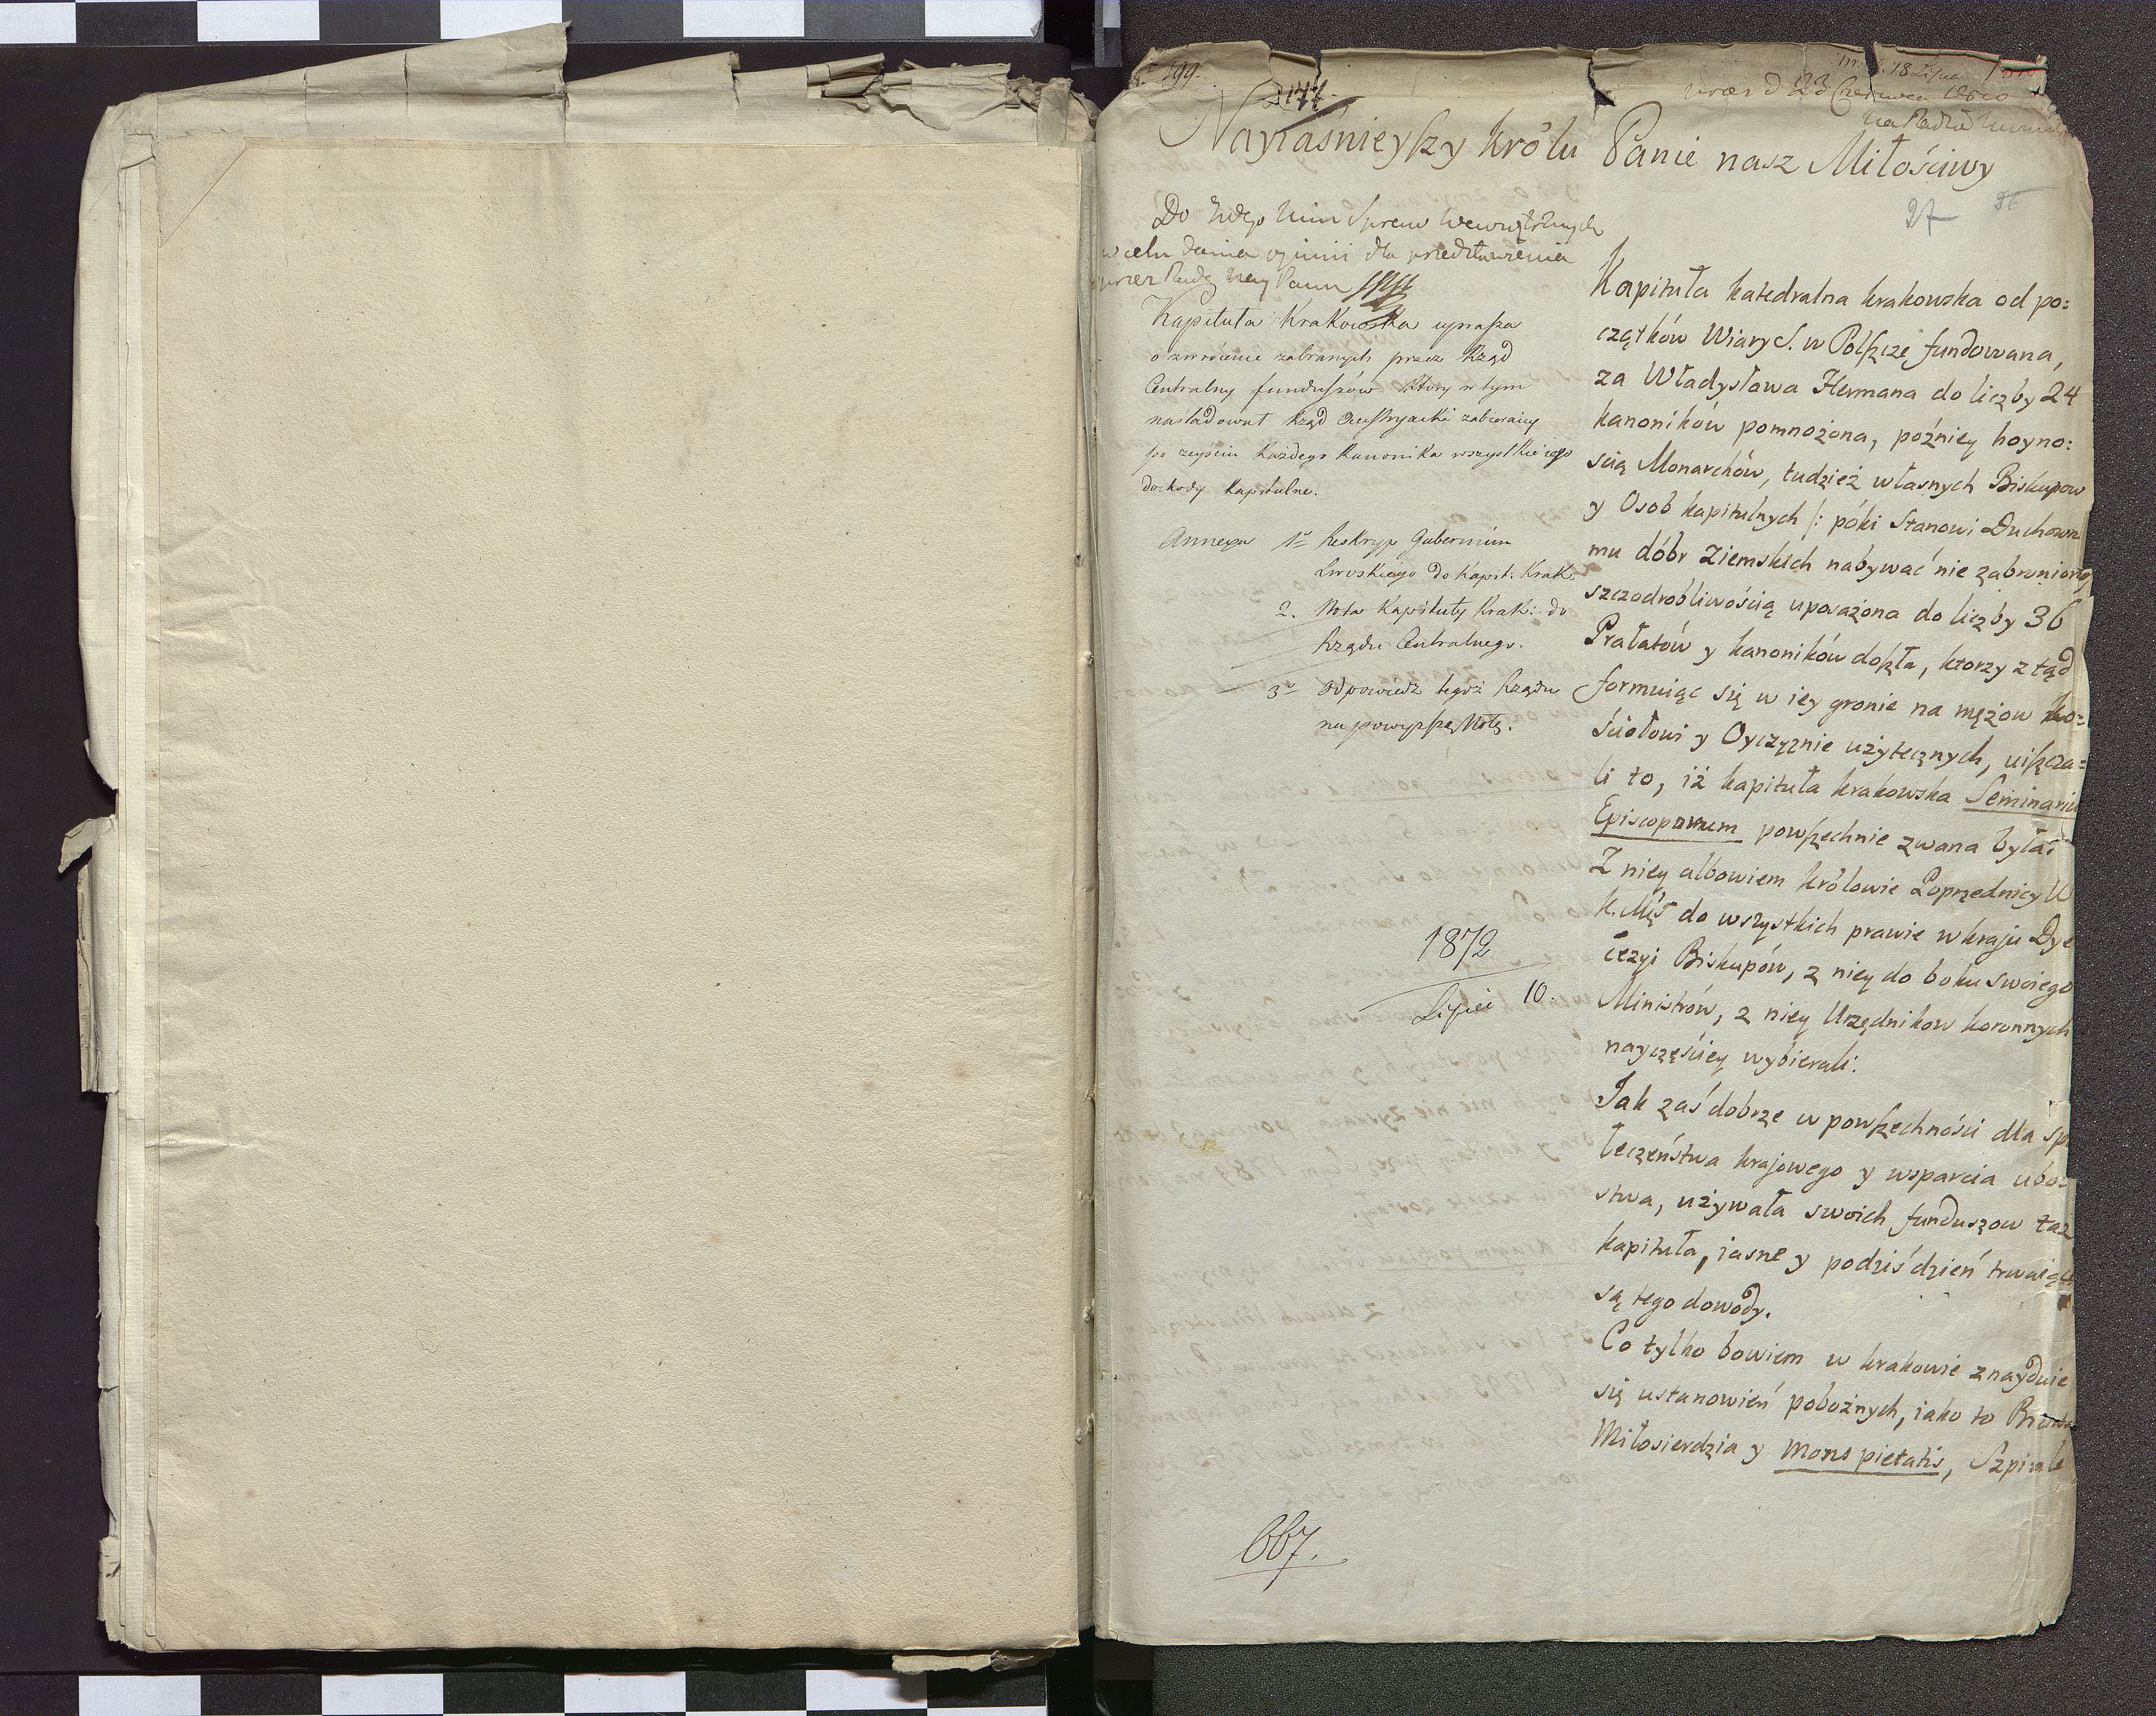 199.
177.
18 Lipca
d 23 Czerwca 1810
Nayiaśnieyſzy królu Panie nasz Miłościwy
27
Do Min Spraw Wewnętrznych
w celu dania opinii dla przedstawienia
przez Radę Nay Panu
Kapituła Krakowska upraſza
o zwrócenie zabranych przez Rząd
Centralny funduſzów który w tym
naśladował Rząd Auſtryacki zabieraiący
po zeyściu każdego Kanonika wszystkie iego
dochody Kapitulne.
Annexa 1º Reskryp Gubernium
Lwoskiego do Kapit. Krak.
2. Nota Kapituły Krak: do
Rządu Centralnego.
3º odpowiedz tegoż Rządu
na powyſszę Notę.
1872
Lipiec 10.
667.
Kapituła katedralna krakowska od po:
czątków Wiary S. w Polſzcze fundowana,
za Władysława Hermana do liczby 24
kanoników pomnożona, poźniey hoyno:
scią Monarchów, tudzież własnych Biskupow
y Osob kapitulnych /: póki Stanowi Duchown
mu dóbr Ziemskich nabywać nie zabroniono
szczodrobliwością uposażona do liczby 36
Prałatów y kanoników doſzła, ktorzy z tąd
formuiąc się w iey gronie na mężow ko=
ściołowi y Oyczyznie użytecznych, uiſzcza=
li to, iż kapituła krakowska Seminariu
Episcoporum powſzechnie zwana była:
Z niey albowiem królowie Poprzednicy W
K. Mści do wszystkich prawie w kraju Dye
cezyi Biskupów, z niey do boku swoiego
Ministrów, z niey Urzędnikow koronnych
nayczęściey wybierali.
Jak zaś dobrze w powſzechności dla sp
łeczeństwa krajowego y wsparcia ubo=
stwa, używała swoich funduszow taż
kapituła, iasne y podziś dzień trwaiące
są tego dowody.
Co tylko bowiem w krakowie znayduie
się ustanowień pobożnych, iako to Bractwo
Miłosierdzia y mons pietatis, Szpitale